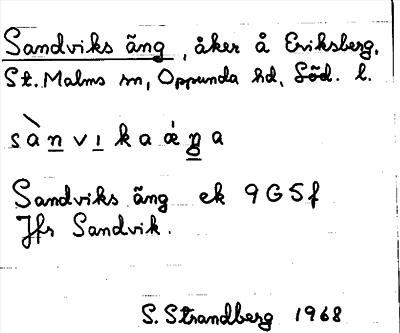 Sandviks äng, åker å Eriksberg,
St. Malms sn, Oppunda hd, Söd. l.
sànvikaáenga
Sandviks äng ek 9G5f
Jfr Sandvik.
S. Strandberg 1968